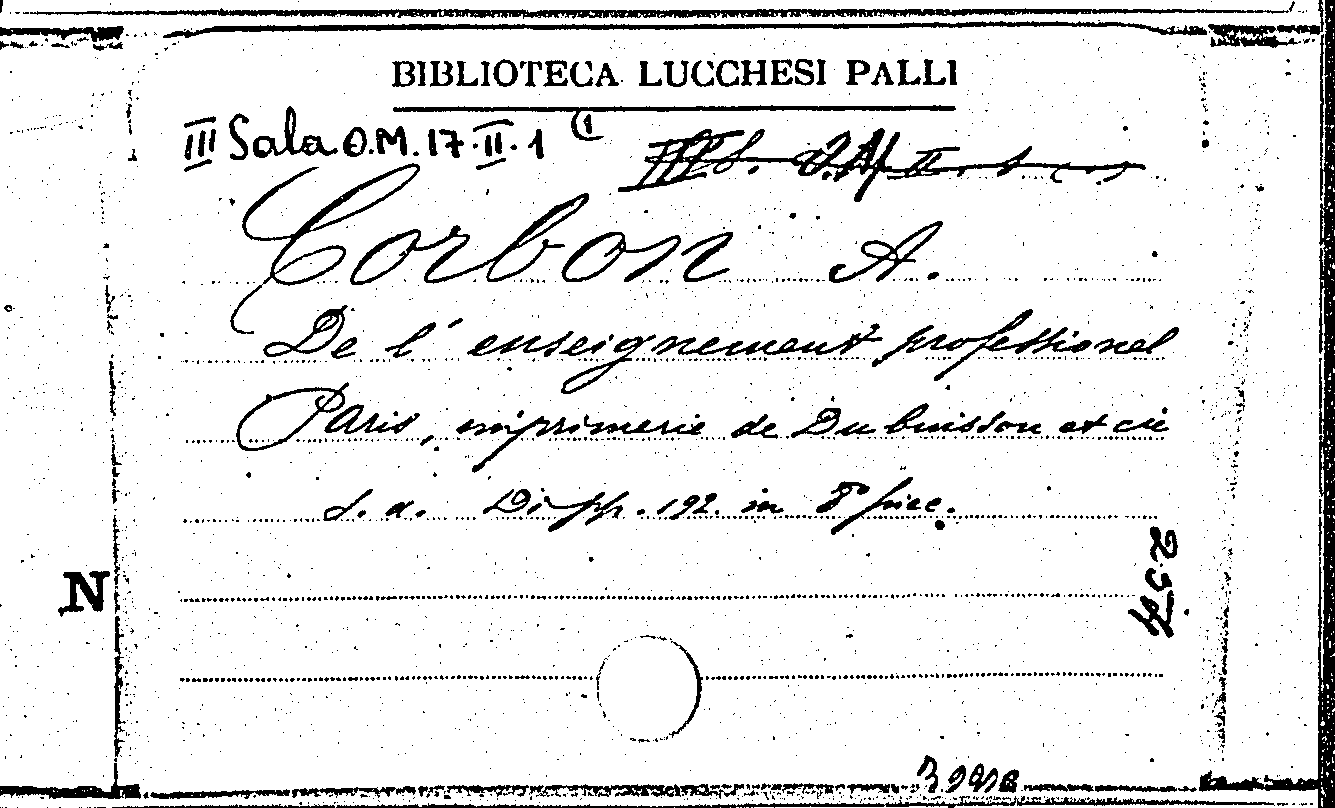 BIBLIOTECA LUCCHESI PALLI
III Sala O.M. 17.II.1 (1
Corbon A.
De l' enseignement professionel
Paris, imprimerie de Dubuisson et cie
S. a. Di pp. 192. in 8° picc.
N